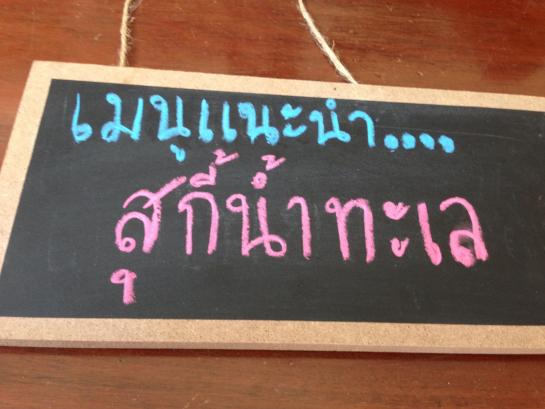 เมนูแนะนำ....
สุกี้น้ำทะเล